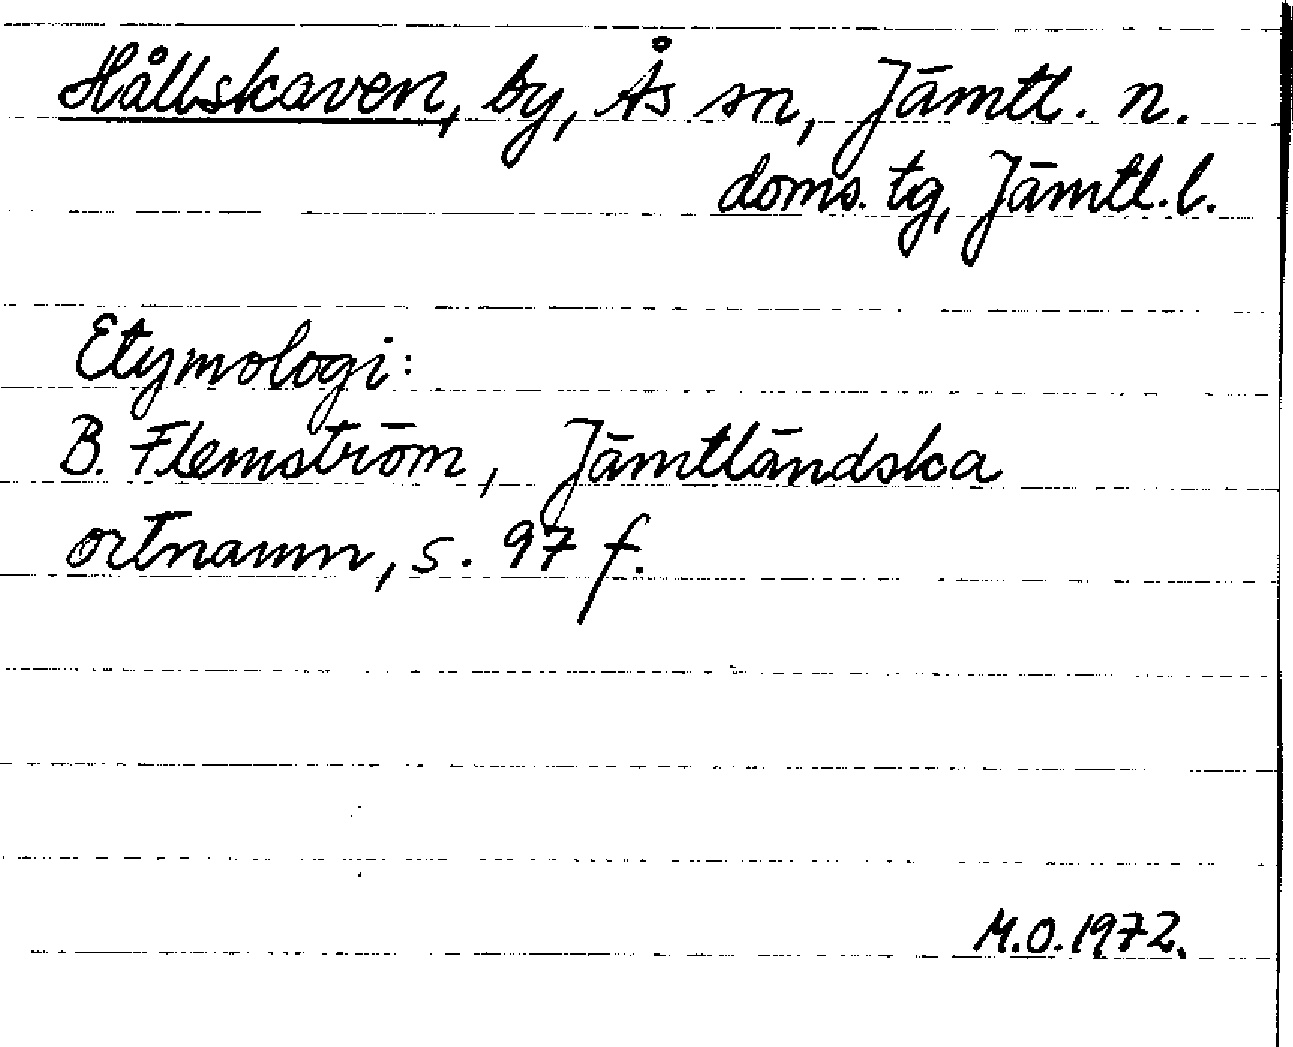 Hållskaven, by, Ås sn, Jämtl. n.
doms. tg, Jämtl. l.
Etymologi:
B. Flemström, Jämtländska
ortnamn, s. 97 f.
M.O. 1972.